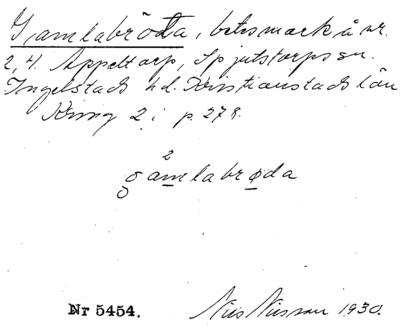 Gamlabröda, betesmark å nr.
2, 4. Appeltorp, Spjutstorps sn.
Ingelstads hd. Kristianstads län
2 i p. 278.
gamlabrøda
Nr 5454. Nils Nilsson 1930.